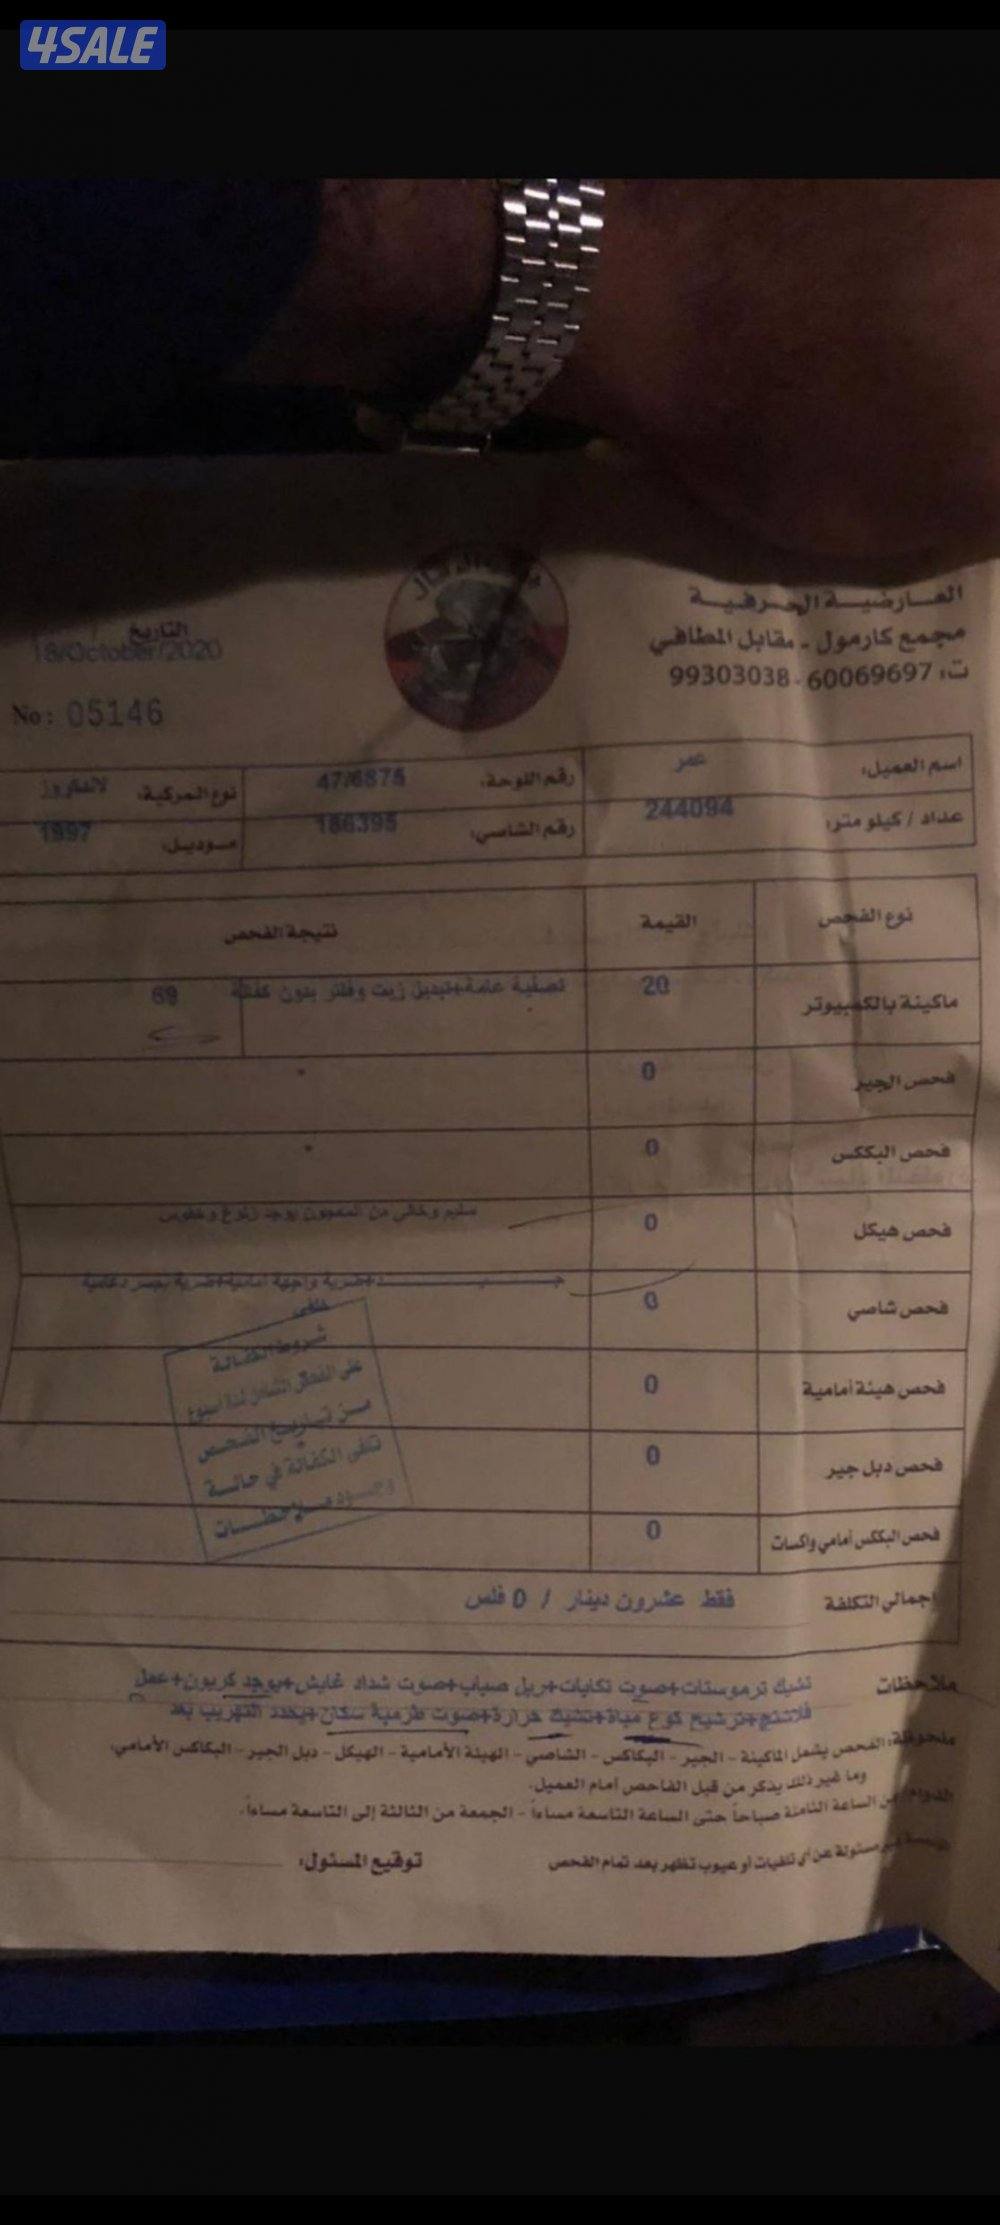 4SALE
العارضية الحرفية
مجمع كارمول - مقابل المطافي
ت: 60069697 - 99303038
التاريخ
18/October/2020
No: 05146
اسم العميل: عمر
رقم اللوحة: 47/6875
نوع المركبة: لاندكروز
عداد / كيلو متر: 244094
رقم الشاصي: 186395
موديل: 1997
نوع الفحص القيمة نتيجة الفحص
ماكينة بالكمبيوتر 20 تصفية عامة+تبديل زيت وفلتر بدون كفالة 69
فحص الجير 0
فحص البككس 0
فحص هيكل 0 سليم وخالي من المعجون يوجد
فحص شاصي 0 ضربة واجهة امامية+ضربة بجسر دعامية
خلفي
فحص هيئة أمامية 0
فحص دبل جير 0
فحص البككس أمامي واكسات 0
شروط الكفالة
على الفحص الشامل لمدة اسبوع
من تاريخ الفحص
تلغى الكفالة في حالة
وجود ملاحظات
إجمالي التكلفة فقط عشرون دينار / 0 فلس
ملاحظات تشيك ترموستات+صوت تكايات+ربل صباب+صوت شداد قايش+يوجد كربون+عمل
فلاشنج+ترشيح كوع مياة+تشيك حرارة+صوت طرمبة سكان+يحدد التهريب بعد
ملحوظة: الفحص يشمل الماكينة - الجير - البكاكس - الشاصي - الهيئة الأمامية - الهيكل - دبل الجير - البكاكس الأمامي.
وما غير ذلك يذكر من قبل الفاحص أمام العميل.
الدوام: من الساعة الثامنة صباحاً حتى الساعة التاسعة مساءاً - الجمعة من الثالثة إلى التاسعة مساءاً.
غير مسئولة عن أي تلفيات أو عيوب تظهر بعد تمام الفحص
توقيع المسئول: